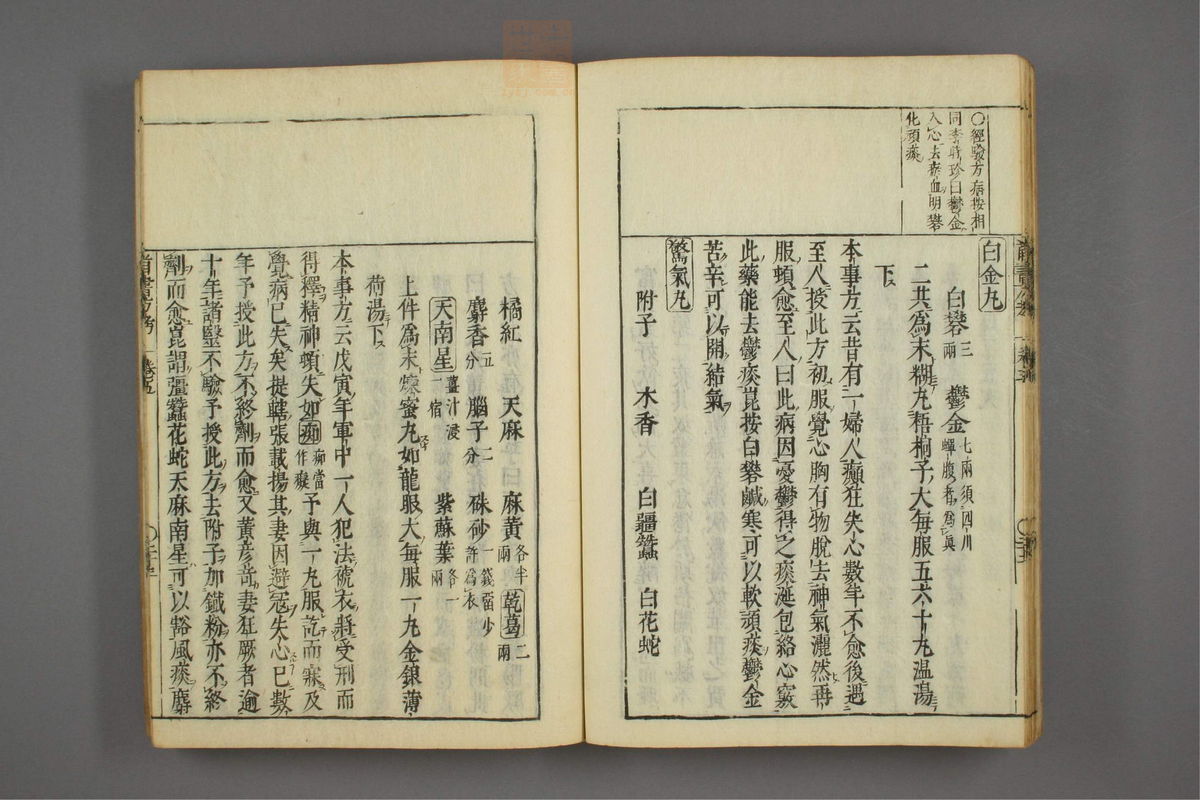 〇經驗方病按相
同李時珍曰鬱金
入心去惡血明礬
化頑痰
白金丸
白礬三兩 鬱金七兩須四川蟬腹者爲眞
二共爲末糊丸梧桐子大每服五六十丸温湯
下
本事方云昔有一婦人癲狂失心數年不愈後遇
至人授此方初服覺心胸有物脫去神氣灑然再
服頓愈至人曰此病因憂鬱得之痰涎包絡心竅
此藥能去鬱痰崑按白礬鹹寒可以軟頑痰鬱金
苦辛可以開結氣
驚氣丸
附子 木香 白疆蠶 白花蛇
橘紅 天麻 麻黃各半兩 乾葛二兩
麝香五分 腦子二分 硃砂一錢畱少許爲衣
天南星薑汁浸一宿 紫蘇葉各一兩
上件爲末煉蜜丸如龍眼大每服一丸金銀薄
荷湯下
本事方云戊寅年軍中一人犯法褫衣將受刑而
得釋精神頓失如痴痴當作癡予與一丸服訖而寐及
覺病已失矣提轄張載揚其妻因避寇失心已數
年予授此方不終劑而愈又黃彥奇妻狂厥者逾
十年諸醫不驗予授此方去附子加鐵粉亦不終
劑而愈崑謂彊蠶花蛇天麻南星可以豁風痰麝